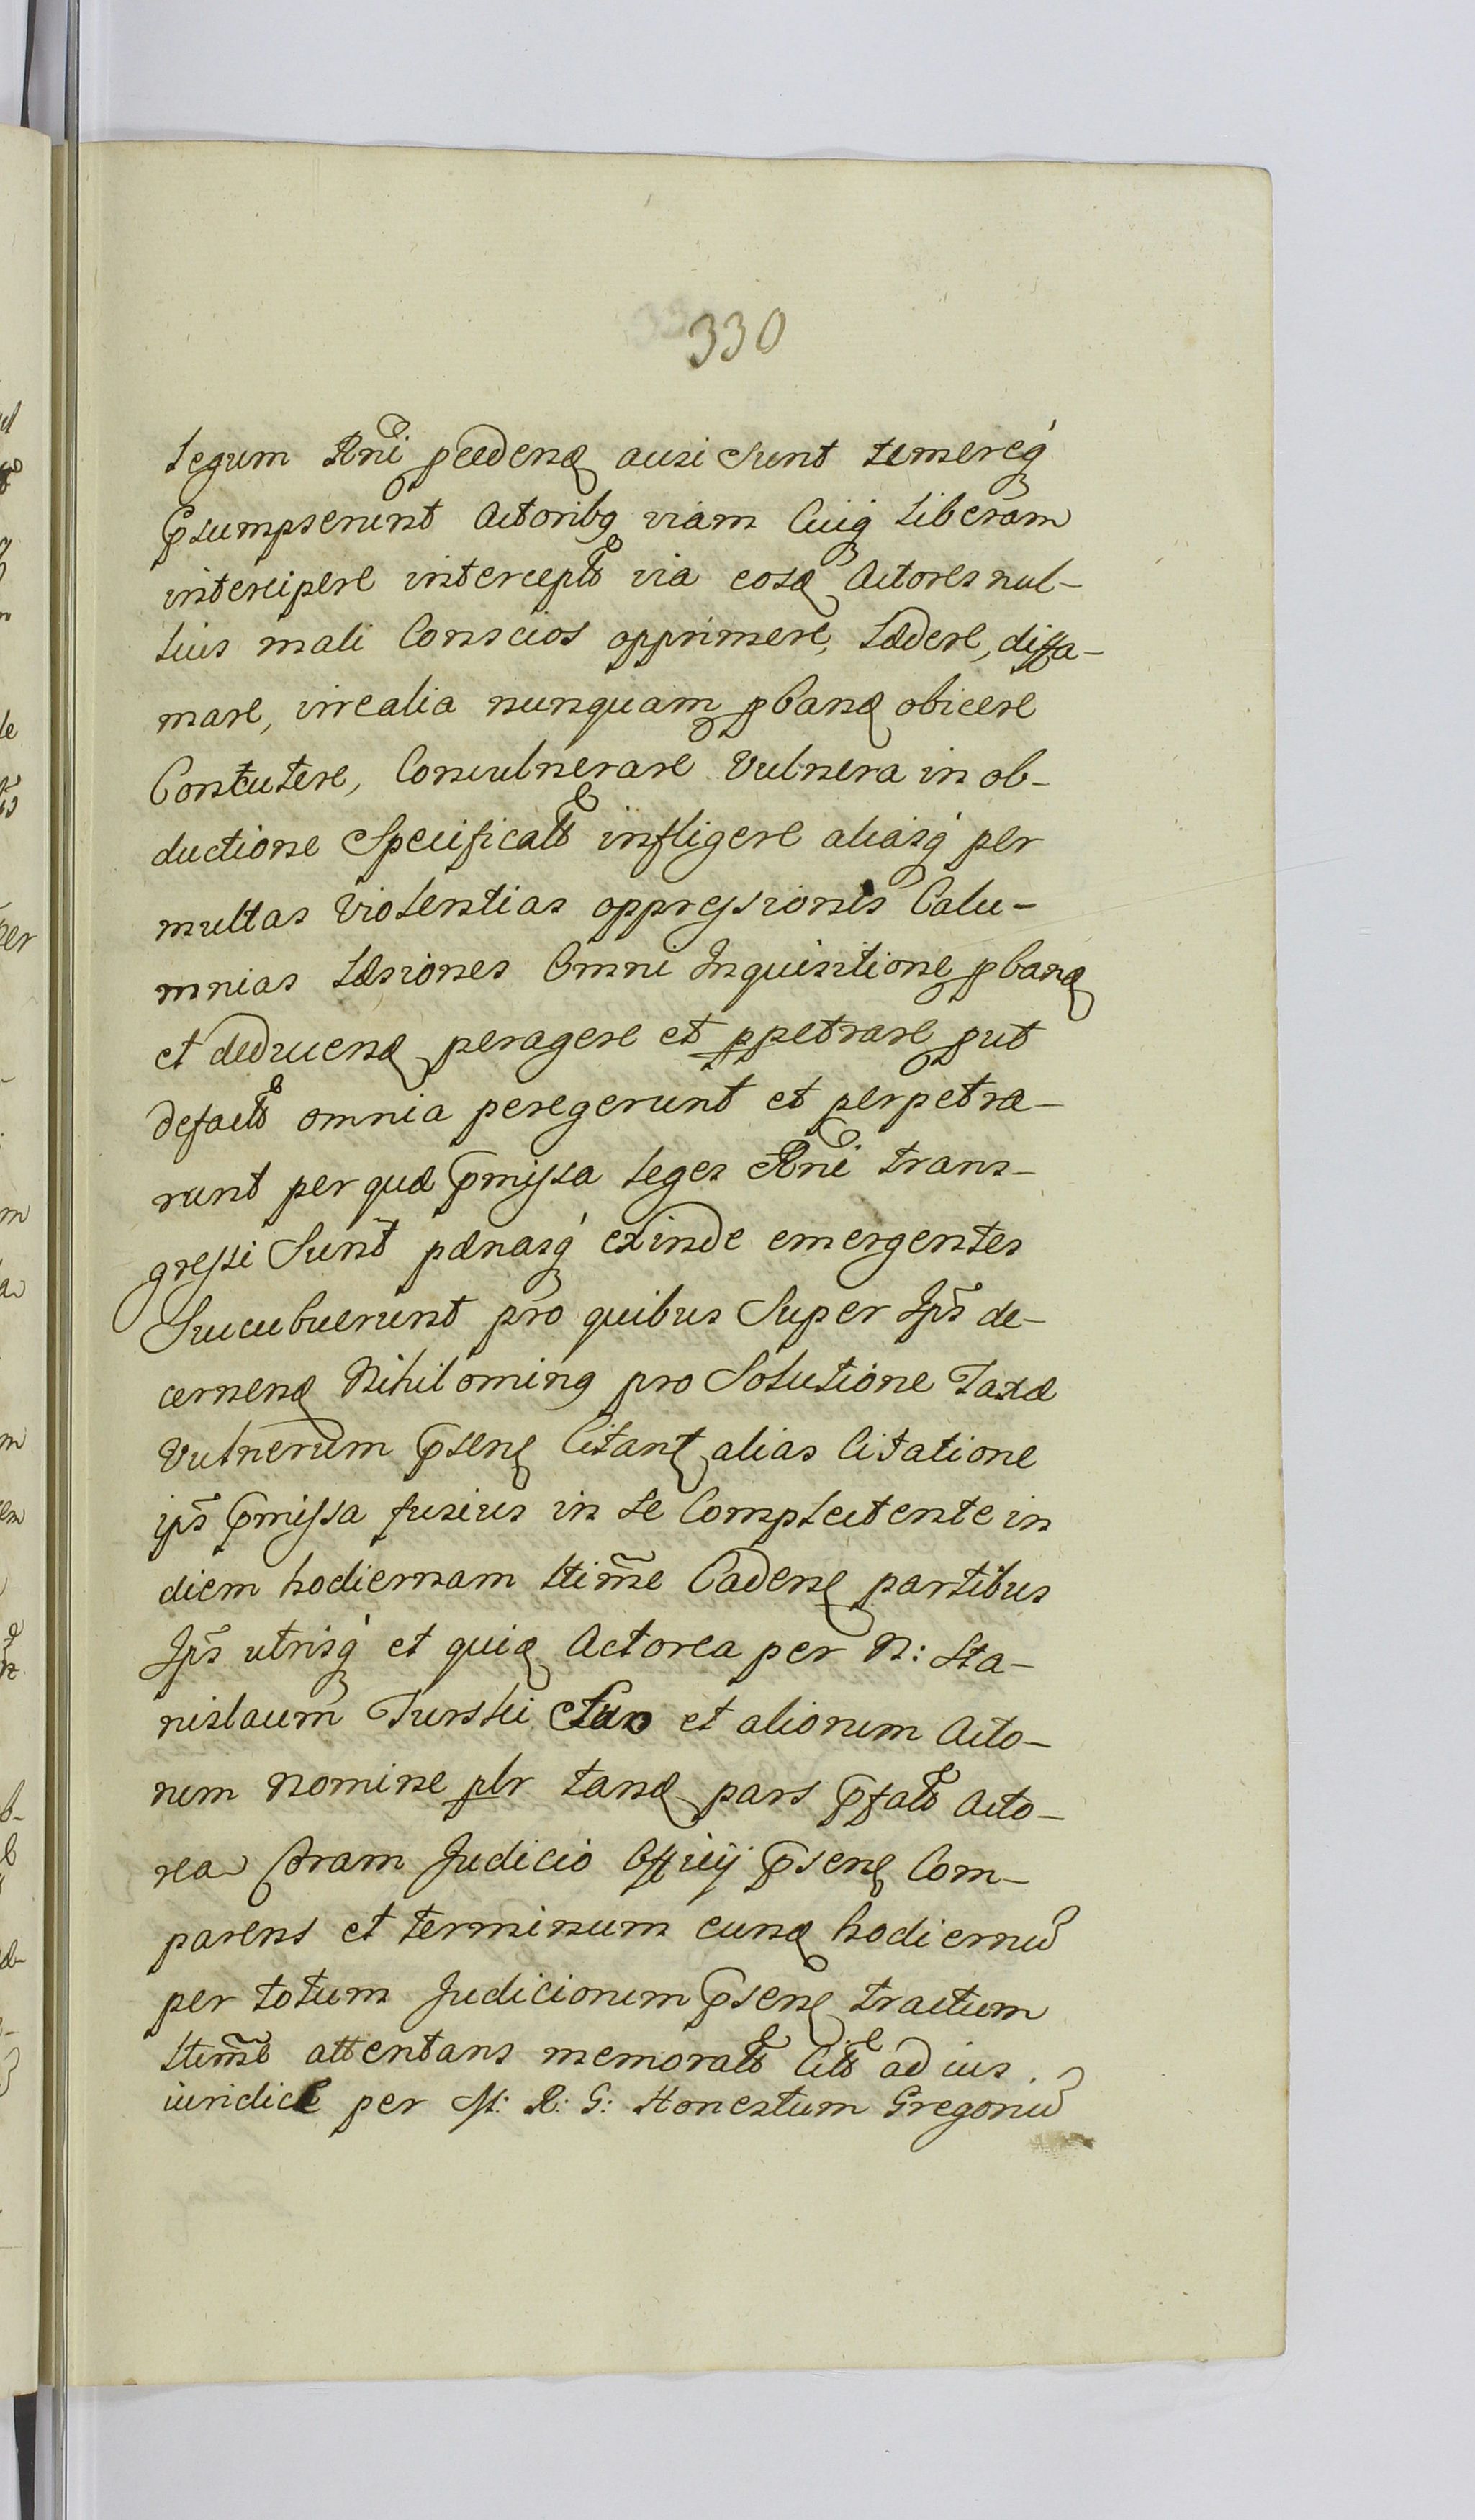 330
legum Rni pcedenȩ ausi sunt temereq́
p̃sumpserunt Actoribq viam cuiq liberam
intercipere intercepta via eosq Actores nul-
lius mali Conscios opprimere, lædere, diffa-
mare, irrealia nunquam pbanȩ obicere
Contutere, Convulnerare Vulnera in ob-
ductione Specificata infligere aliasq́ per
multas violentias oppressiones Calu-
mnias læsiones Omni Inquisitione pbanȩ
et deducenȩ peragere et ppetrare put
defacto omnia peregerunt et perpetra-
runt per quæ p̃missa leges Rni trans-
gressi Sunt pænasq́ exinde emergentes
Succubuerunt pro quibus Super Ip̃s de-
cernenȩ Nihilominq pro Solutione Taxæ
Vulnerum p̃senȩ Citanȩ alias Citatione
ip̃s p̃missa fusius in se Complectente in
diem hodiernam ltim̃e Cadenȩ partibus
Ip̃s utrisq́ et quiȩ Actorea per N: Sta-
nislaum Turski Suo et aliorum Acto-
rum Nomine plr tanȩ pars p̃fata Acto-
rea Coram Judicio Officij p̃senȩ Com-
parens et terminum eunȩ hodiernũ
per totum Judiciorum p̃senȩ tractum
ltim̃e attentans memorata Cita ad ius
iuridice per M: R: G: Honestum Gregoriũ